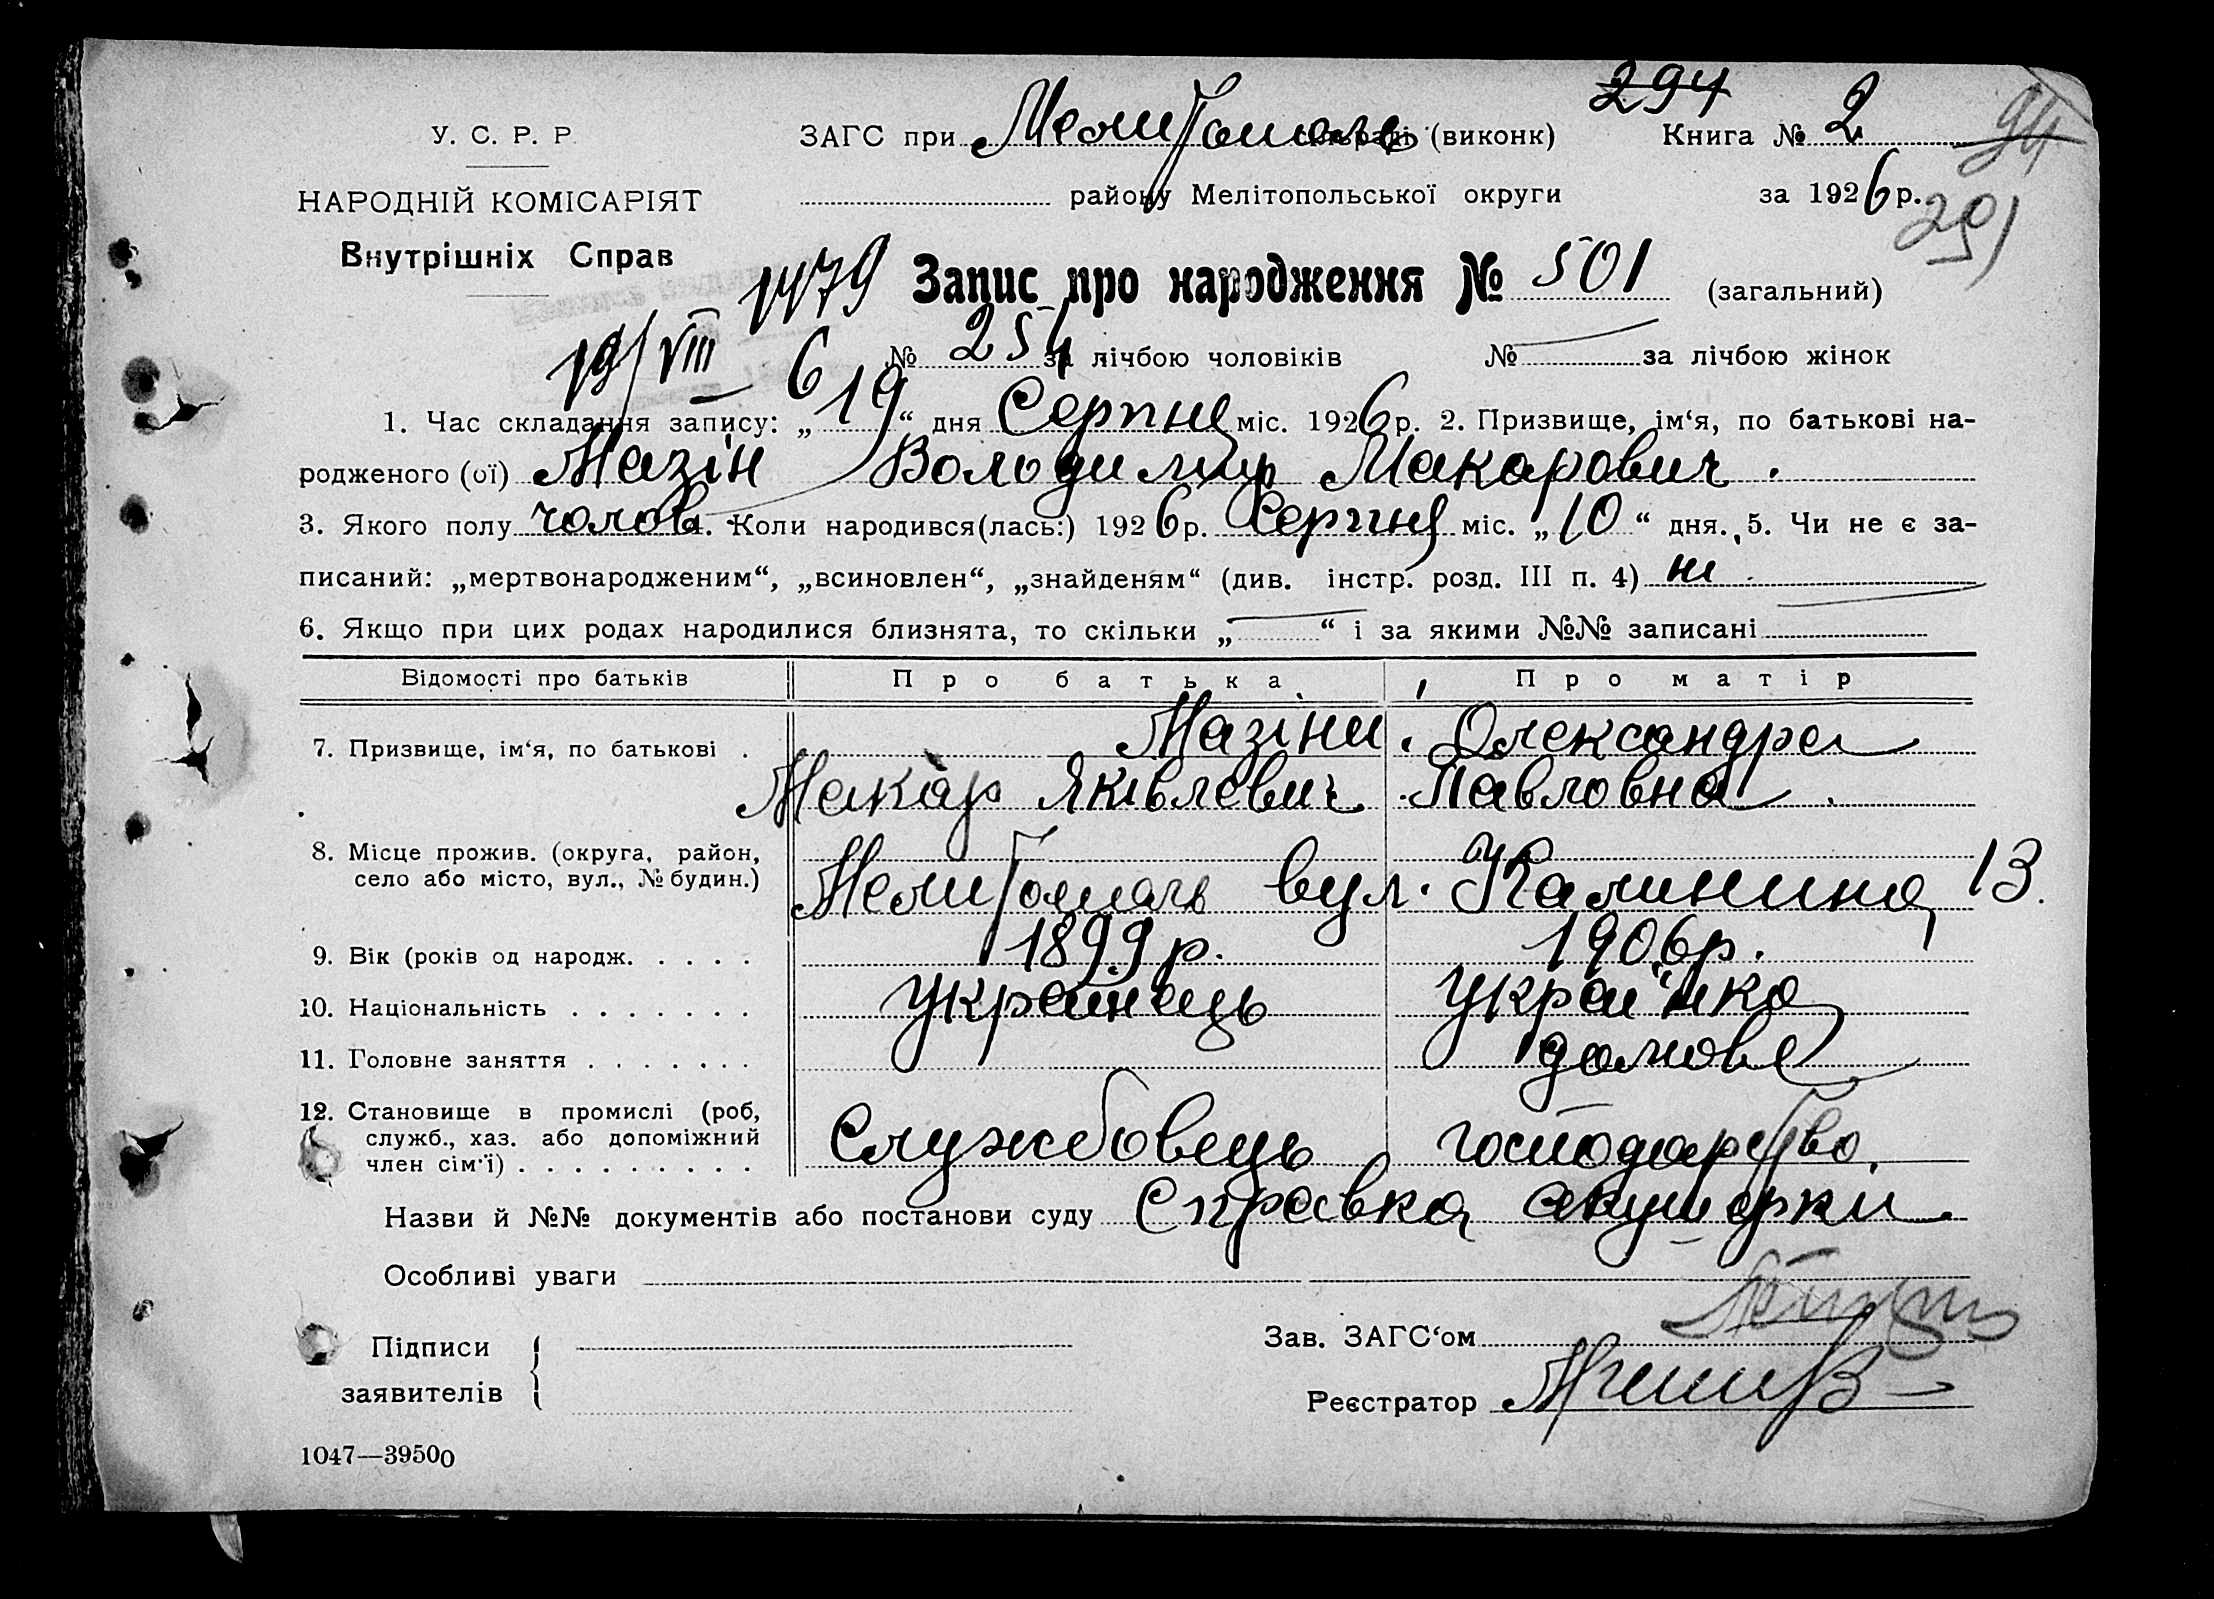 294
У. С. Р. Р.
ЗАГС при Мелитополь сільраді (виконк)
Книга № 2
94
НАРОДНІЙ КОМІСАРІЯТ
району Мелітопольської округи
за 1926 р.
291
Внутрішніх Справ
1479 Запис про народження № 501 (загальний)
19/VIII 6 № 254 за лічбою чоловіків № — за лічбою жінок
1. Час складання запису: „19“ дня Серпня міс. 1926 р. 2. Призвище, ім‘я, по батькові на-
родженого (ої) Мазін Володимир Макарович.
3. Якого полу чолов. 4. Коли народився(лась:) 1926 р. Серпня міс. „10“ дня. 5. Чи не є за-
писаний: „мертвонародженим“, „всиновлен“, „знайденям“ (див. інстр. розд. III п. 4) ні
6. Якщо при цих родах народилися близнята, то скільки „—“ і за якими №№ записані —
Відомості про батьків Про батька Про матір
7. Призвище, ім‘я, по батькові . Мазіни. Олександра
Макар Яківлевич Павловна.
8. Місце прожив. (округа, район,
село або місто, вул., № будин.) Мелитополь вул. Калинина, 13.
9. Вік (років од народж. . . . . 1899 р. 1906 р.
10. Національність . . . . . . . Українець Українка
11. Головне заняття . . . . . . . домове
12. Становище в промислі (роб,
служб., хаз. або допоміжний Службовець господарство.
член сім‘ї) . . . . . . . . .
Назви й №№ документів або постанови суду Справка акушерки.
Особливі уваги
Підписи
Зав. ЗАГС‘ом
заявителів
Реєстратор
1047—39500